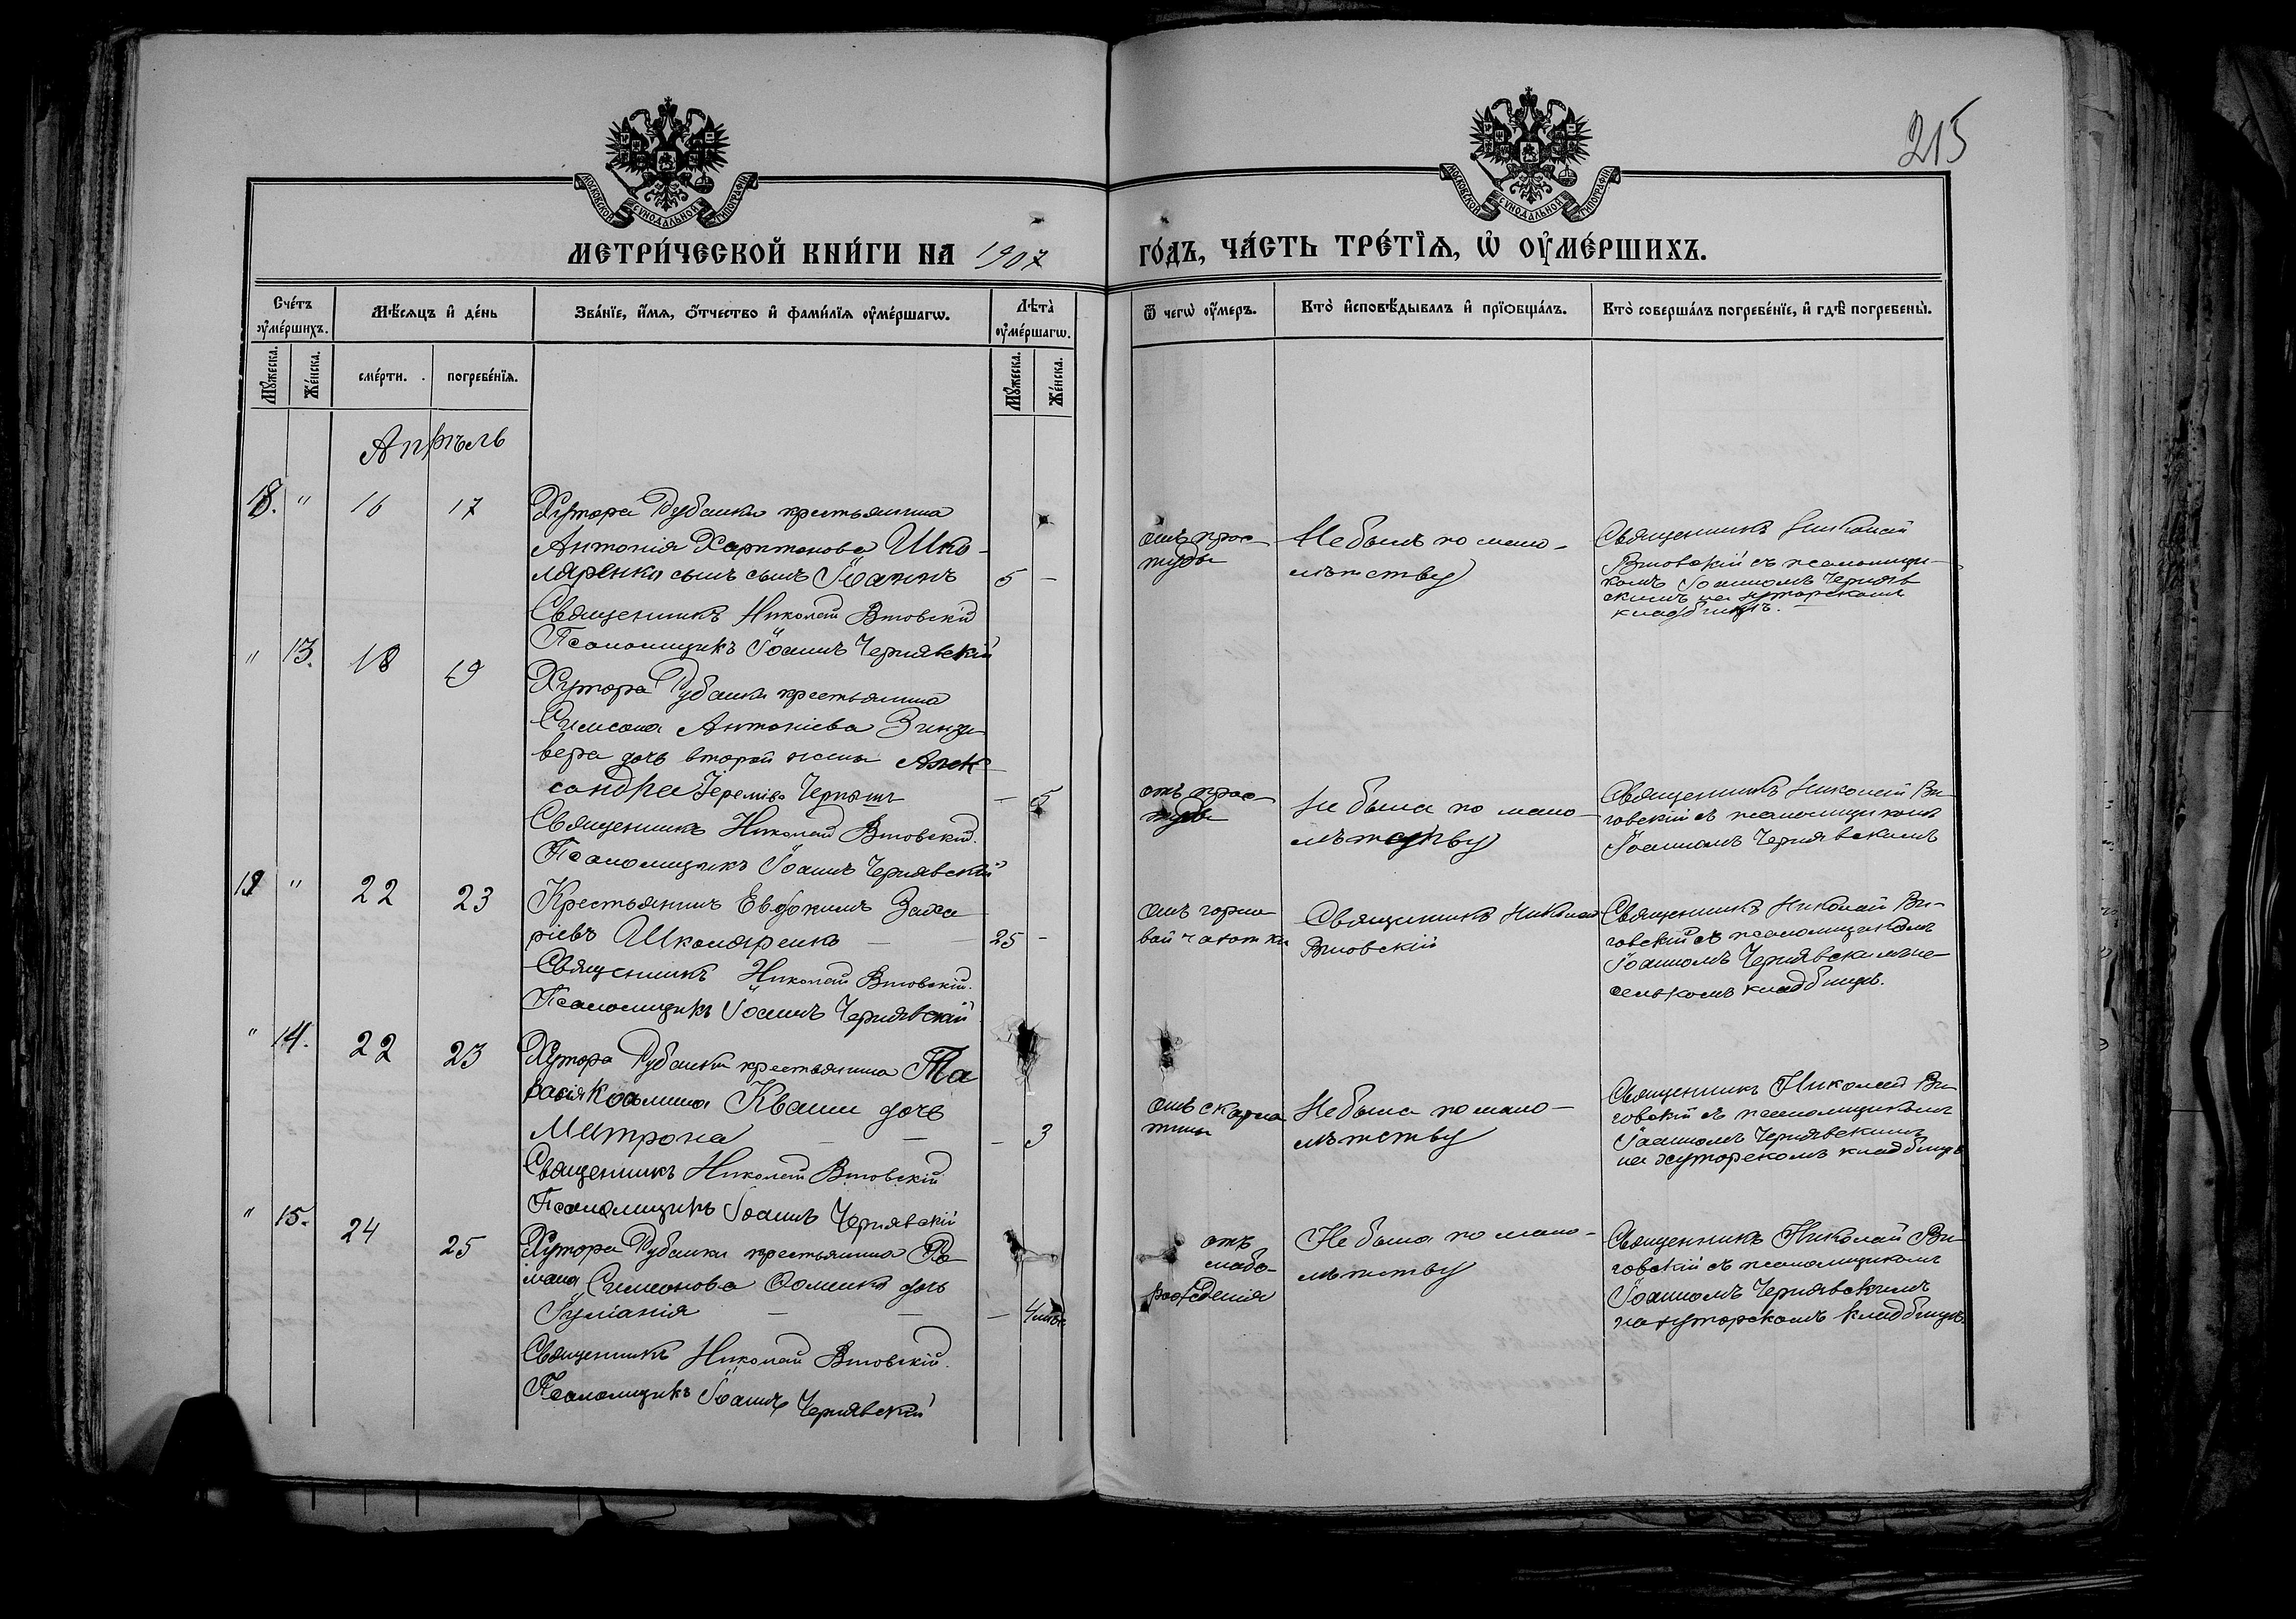 215
МОСКОВСКОЙ СѴНОДАЛЬНОЙ ТИПОГРАФІИ
МОСКОВСКОЙ СѴНОДАЛЬНОЙ ТИПОГРАФІИ
МЕТРИ́ЧЕСКОЙ КНИ́ГИ НА 1907 ГО́ДЪ, ЧА́СТЬ ТРЕ́ТЇѦ, Ѡ ОУМЕ́РШИХЪ.
Сче́тъ оуме́ршихъ.
Мѣ́сѧцъ и де́нь
Зва́нїе, и́мѧ, ѻ́тчество и фами́лїѧ оуме́ршагѡ.
Лѣ́та оуме́ршагѡ.
Ѿ чегѡ̀ оу́меръ.
Кто̀ исповѣ́дывалъ и прїѻбща́лъ.
Кто̀ соверша́лъ погребе́нїе, и гдѣ̀ погребены̀.
Мꙋ́жеска.
Же́нска.
сме́рти.
погребе́нїѧ.
Мꙋ́жеска.
Же́нска.
Апрѣль
18. " 16 17 Хутора Рубанки крестьянина
Антонія Харитонова Шко-
ляренки сынъ Іоаннъ 5 –
Священникъ Николай Витовскій
Псаломщикъ Іоаннъ Чернявскій
отъ прос-
туды
Не былъ по мало-
лѣтству
Священникъ Николай
Витовскій съ псаломщи-
комъ Іоанномъ Черняв
скимъ на хуторскомъ
кладбищѣ.
" 13. 18 19 Хутора Рубанки крестьянина
Симеона Антоніева Зинзи-
вера дочь второй жены Алек-
сандра Іереміева – 5
Священникъ Николай Витовскій.
Псаломщикъ Іоаннъ Чернявскій
отъ прос-
туды
Не была по мало-
лѣтству
Священникъ Николай Ви-
товскій съ псаломщикомъ
Іоанномъ Чернявскимъ
19 " 22 23 Крестьянинъ Евдокимъ Заха
ріевъ Школяренко – 25 –
Священникъ Николай Витовскій.
Псаломщикъ Іоаннъ Чернявскій
отъ горло
вой чахотки
Священникъ Николай
Витовскій
Священникъ Николай Ви-
товскій съ псаломщикомъ
Іоанномъ Чернявскимъ на
сельскомъ кладбищѣ.
" 14. 22 23 Хутора Рубанки крестьянина Та
расія Космина Кваши дочь
Матрона – – – 3
Священникъ Николай Витовскій
Псаломщикъ Іоаннъ Чернявскій
отъ скарла
тины
Не была по мало-
лѣтству
Священникъ Николай Ви-
товскій съ псаломщикомъ
Іоанномъ Чернявскимъ
на хуторскомъ кладбищѣ
" 15. 24 25 Хутора Рубанки крестьянина Ро-
мана Симеонова дочь
Іуліанія – – – 4
Священникъ Николай Витовскій.
Псаломщикъ Іоаннъ Чернявскій
отъ
слабо-
рожденія
Не была по мало-
лѣтству
Священникъ Николай Ви-
товскій съ псаломщикомъ
Іоанномъ Чернявскимъ
на хуторскомъ кладбищѣ